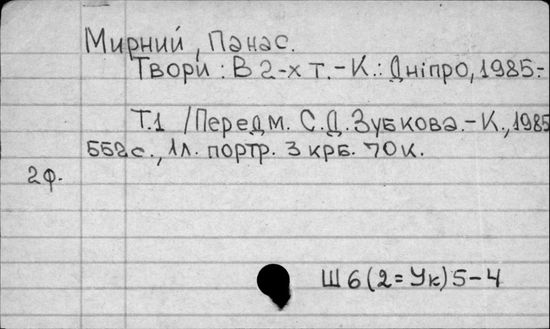 Мирний, Панас.
Твори: В 2-х т.-К.: Дніпро, 1985.-
Т.1 /Передм. С.Д. Зубкова.-К., 1985
552с., 1л. портр. 3 крб. 70 к.
2ф.
Ш 6(2=Ук)5-4